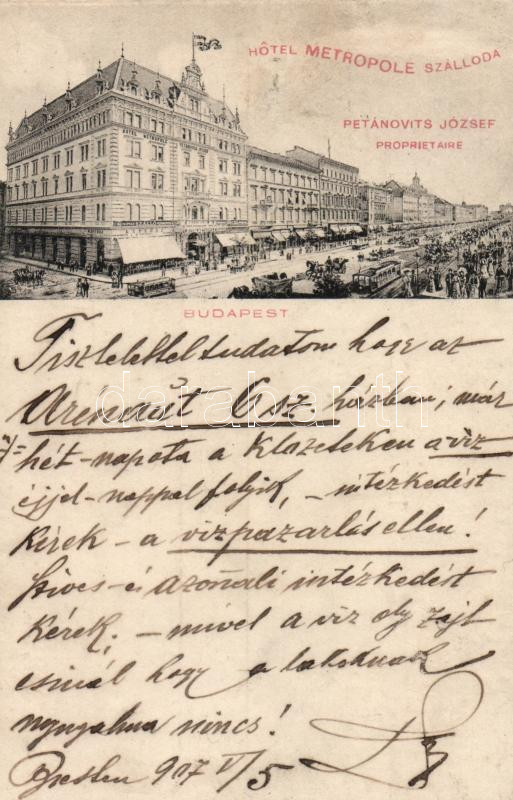 HÔTEL METROPOLE SZÁLLODA
PETÁNOVITS JÓZSEF
PROPRIETAIRE
HOTEL METROPOLE
BUDAPEST
Tisztelettel tudatom hogy az
Aréna út 6 sz. házban; már
hét-napota a Klozeteken a víz
éjjel-nappal folyik, – intézkedést
kérek – a vizpazarlás ellen!
Szives-és azonali intézkedést
kérek; – mivel a víz oly zajt
csinál hogy a lakóknak
nyugalma nincs!
907 V/5
darabanth